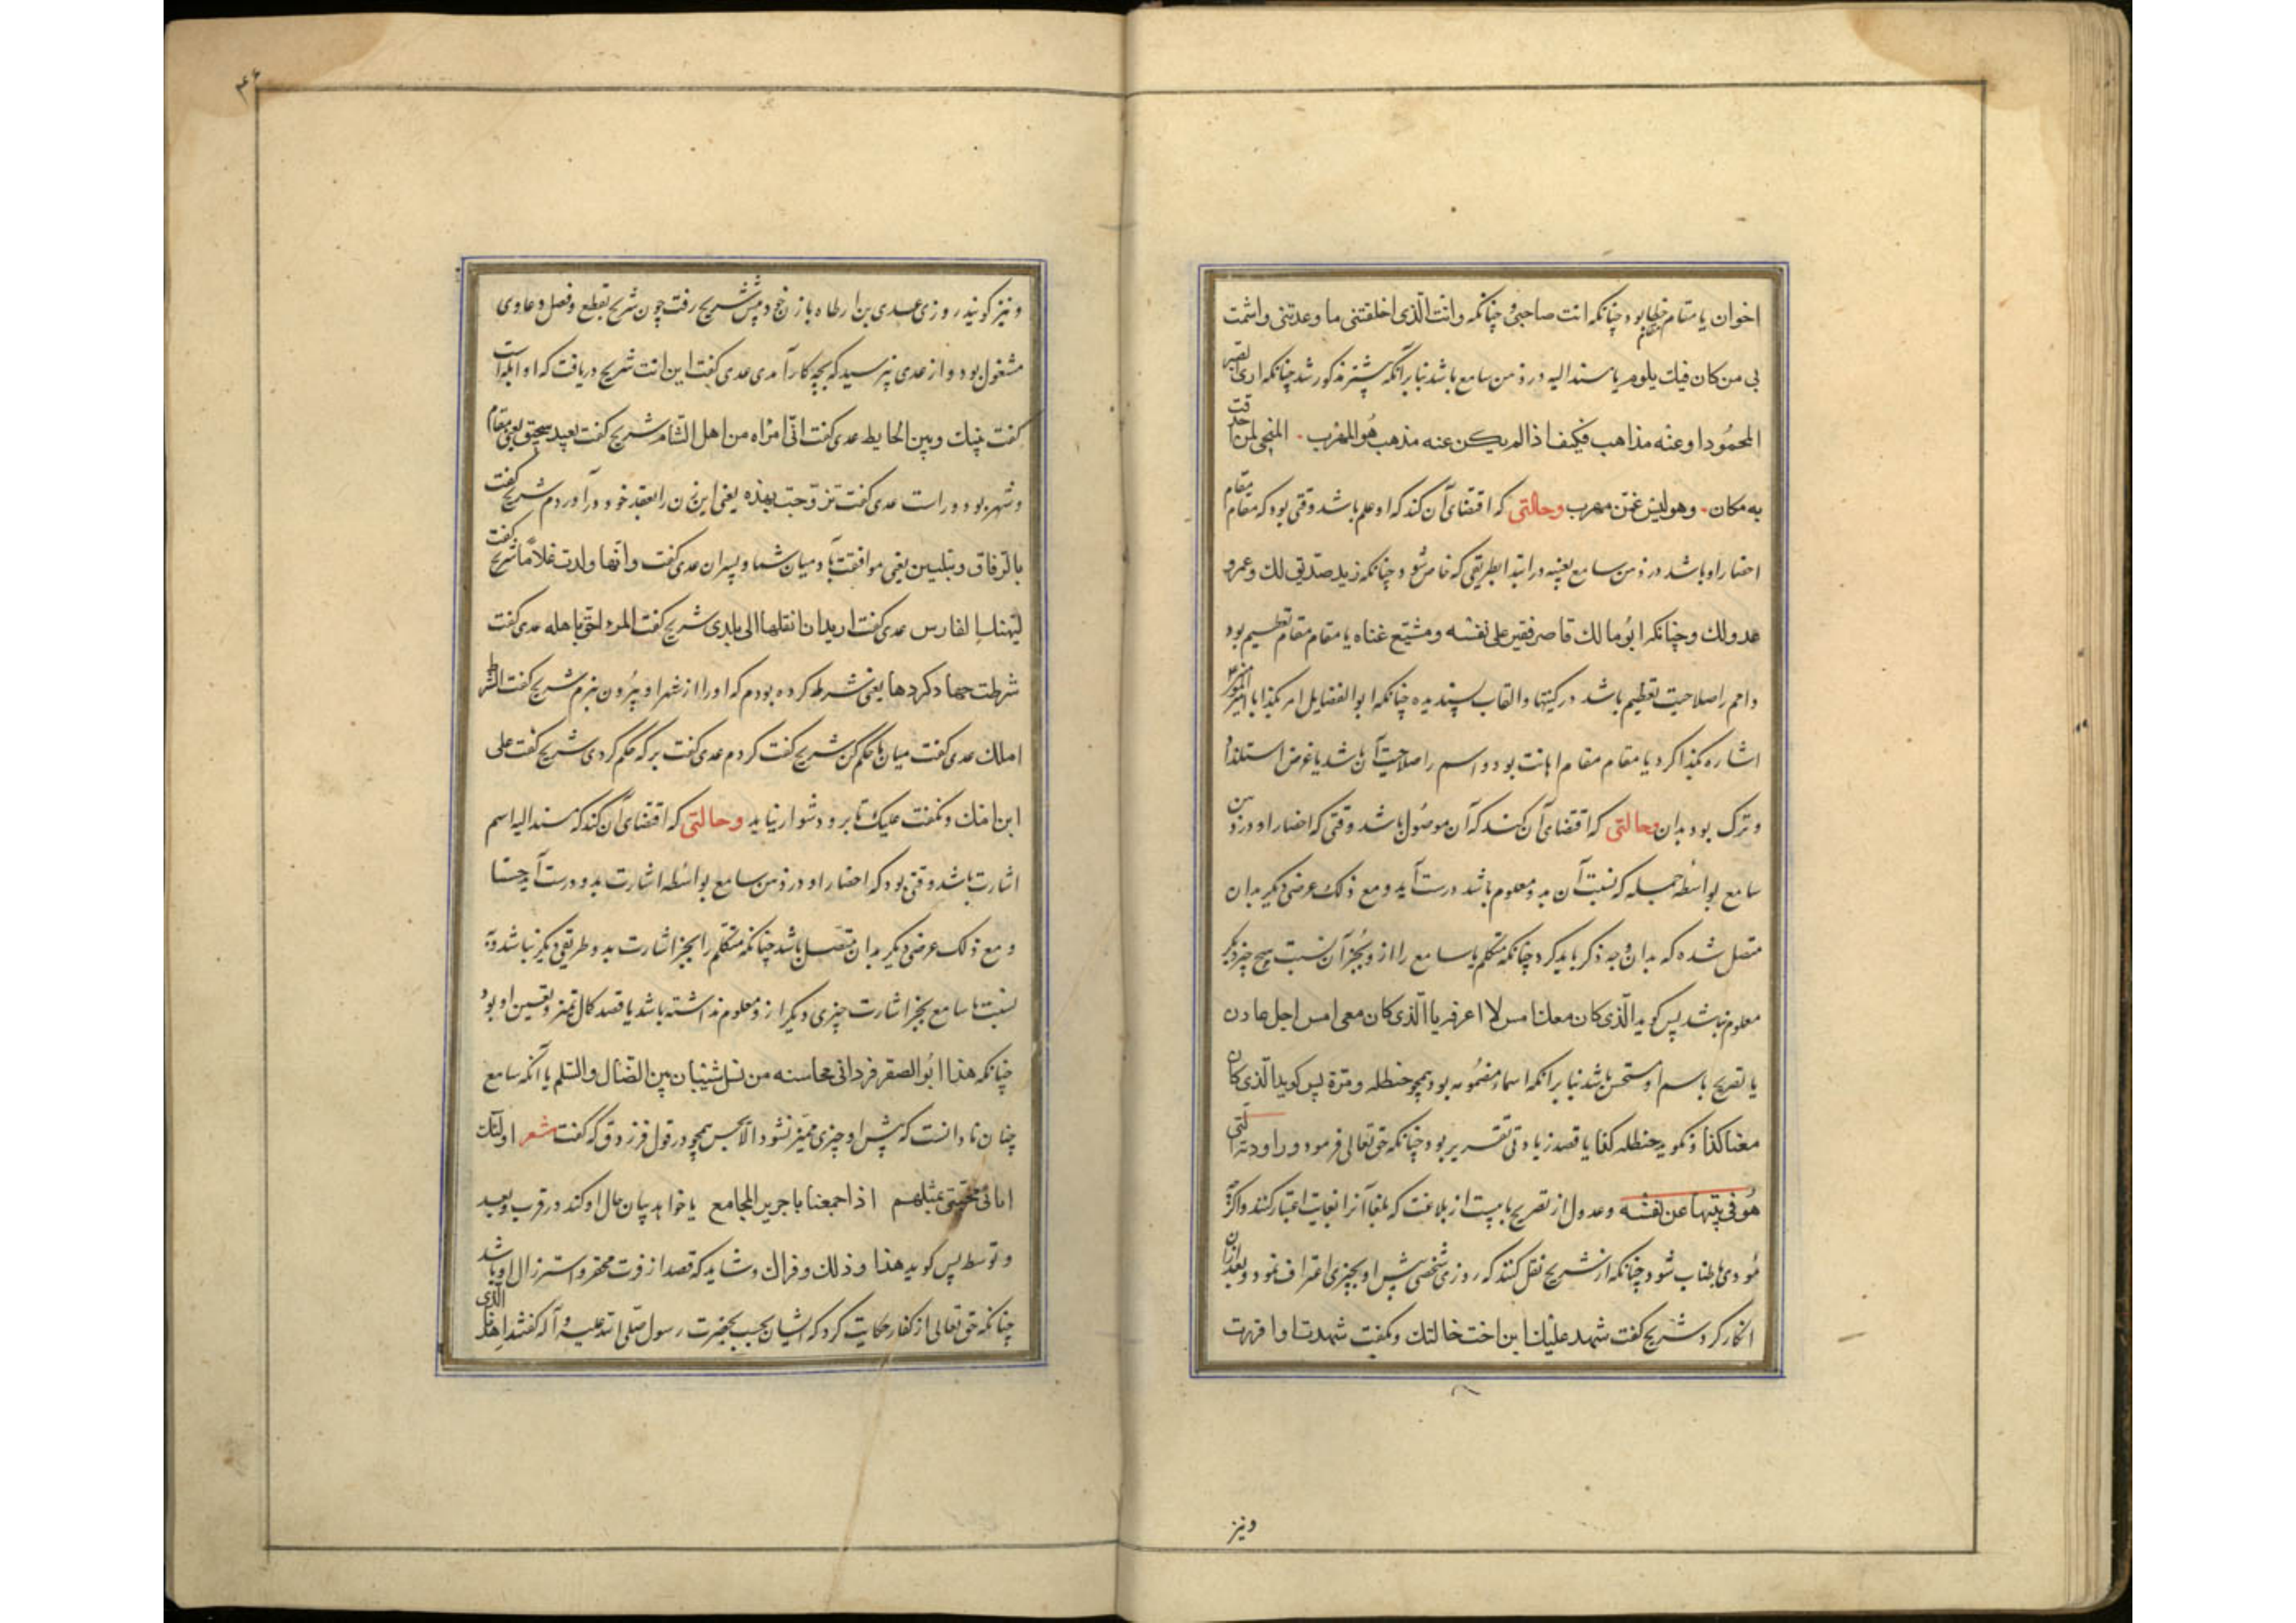 اخوان یا مقام خطاب بود چنانکه انت صاحبی و چنانکه وانت الذی اخلفتنی ما وعدتنی واشمت
بی من کان فیک یلوم یا مسند الیه در ذهن سامع باشد بنا بر آنکه پیشتر مذکور شد چنانکه اری الصبر
المحمود او عنه مذاهب فکیف اذا لم یکن عنه مذهب هو المهرب المنجی لمن احدقت
به مکان وهو لیس عنهن مهرب وحالتی که اقتضای آن کند که او علم باشد وقتی بود که مقام مقام
احضار او باشد در ذهن سامع بعینه در ابتدا بطریقی که خاص شود چنانکه زید صدیق لک وعمرو
عدو لک وچنانکه ابو مالک قاصر فقره علی نفسه ومشیع غناه یا مقام مقام تعظیم بود
واسم را صلاحیت تعظیم باشد در کنیتها والقاب پسندیده چنانکه ابو الفضایل امر بکذا یا امیر
اشاره بکذا کرد یا مقام مقام اهانت بود واسم را صلاحیت آن باشد یا غرض استلذاذ
وتبرک بود بدان وحالتی که اقتضای آن کند که آن موصول باشد وقتی که احضار او در ذهن
سامع بواسطه جمله که نسبت آن بدو معلوم باشد درست آید ومع ذلک غرضی دیگر بدان
متصل شده که بدان وجه ذکر باید کرد چنانکه متکلم یا سامع را از و بجز آن نسبت هیچ چیز دیگر
معلوم نباشد پس گوید الذی کان معک امس لا اعرفه یا الذی کان معی امس رجل عادن
یا تصریح باسم او مستحسن نباشد بنا بر آنکه اسماء مضمومه بود همچو حنظله ومرة پس گوید الذی کان
معنا کذا ونگوید حنظله کذا یا قصد زیادتی تقریر بود چنانکه حق تعالی فرمود وراودته التی
هو فی بیتها عن نفسه وعدول از تصریح بابیست از بلاغت که بلغا آنرا بغایت اعتبار کنند واگر چه
مودی باطناب شود چنانکه از شریح نقل کنند که روزی شخصی پیش او بچیزی اعتراف نمود وبعد از آن
انکار کرد شریح گفت شهد علیک ابن اخت خالتک ونگفت شهدت او اقررت
ونیز
ونیز گویند روزی عدی بن ارطاه با زن خود پیش شریح رفت چون شریح بقطع وفصل دعاوی
مشغول بود واز عدی نپرسید که بچه کار آمدی عدی گفت این انت شریح دریافت که او ابله است
گفت بینک وبین الحایط عدی گفت انی امراه من اهل الشام شریح گفت بعید سحیق یعنی مقام
وشهر بود دور است عدی گفت تزوجت بهذه یعنی این زن را بعقد خود درآوردم شریح گفت
بالرفاق والبنین یعنی موافقت باد میان شما وپسران عدی گفت وانها ولدت غلاما شریح گفت
لیهنک الفارس عدی گفت ارید ان انقلها الی بلدی شریح گفت المرء احق باهله عدی گفت
شرطت لها دکرها یعنی شرط کرده بودم که او را از شهر او بیرون نبرم شریح گفت الشرط
املک عدی گفت میان ما حکم کن شریح گفت کردم عدی گفت بر که حکم کردی شریح گفت علی
ابن امک ونگفت علیک تا برو دشوار نیاید وحالتی که اقتضای آن کند که مسند الیه اسم
اشارت باشد وقتی بود که احضار او در ذهن سامع بواسطه اشارت بدو درست آید حسا
ومع ذلک غرضی دیگر بدان متصل باشد چنانکه متکلم را بجز اشارت بدو طریقی دیگر نباشد و
نسبت با سامع بجز اشارت چیزی دیگر از و معلوم نداشته باشد یا قصد کمال تمیز وتعیین او بود
چنانکه هذا ابو الصقر فردا فی محاسنه من نسل شیبان بین الضال والسلم یا آنکه سامع
چنان نادانست که پیش او چیزی ممیز نشود الا بحس همچو در قول فرزدق که گفت شعر اولئک
ابائی فجئنی بمثلهم اذا جمعتنا یا جریر المجامع یا خواهد بیان حال او کند در قرب وبعد
وتوسط پس گوید هذا وذلک وذاک وشاید که قصد از قرب تحقیر واسترذال او باشد
چنانکه حق تعالی از کفار حکایت کرد که ایشان بحسب بحضرت رسول صلی الله علیه وآله گفتند اهذا الذی